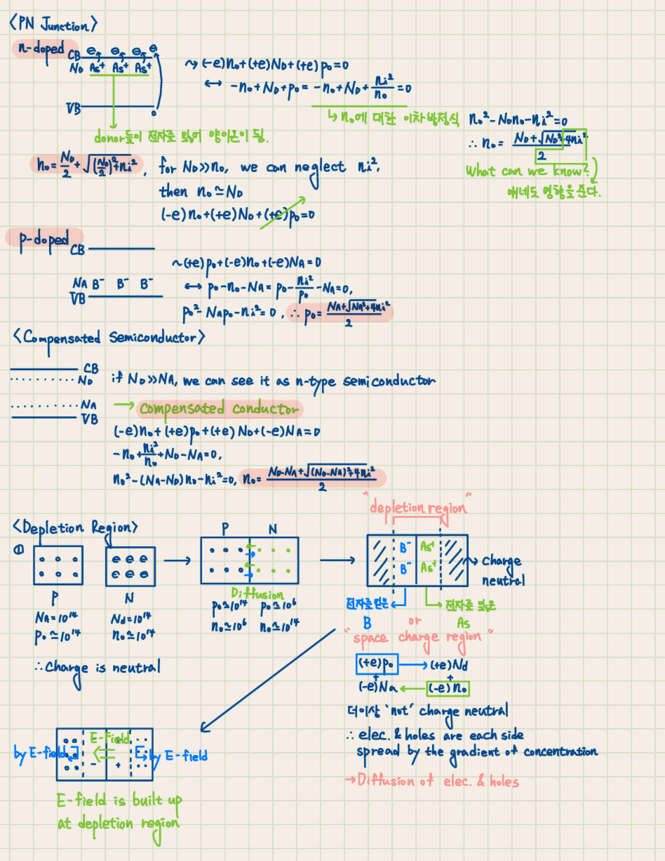 <PN Junction>
n-doped
CB ⊖ ⊖ ⊖ ⊖
ND As⁺ As⁺ As⁺
VB
donor들이 전자로 잃어 양이온이 됨.
↝ (-e)n₀+(+e)ND+(+e)p₀=0
↔ -n₀+ND+p₀ = -n₀+ND+ni²/n₀=0
↳ n₀에 대한 이차방정식 n₀²-NDn₀-ni²=0
∴ n₀ = (ND+√(ND²+4ni²))/2
What can we know?
얘네도 영향을 준다.
n₀ = ND/2 + √((ND/2)²+ni²), for ND≫n₀, we can neglect ni²,
then n₀≃ND
(-e)n₀+(+e)ND+(+e)p₀=0
p-doped
CB
NA B⁻ B⁻ B⁻
VB
~(+e)p₀+(-e)n₀+(-e)NA=0
↔ p₀-n₀-NA = p₀-ni²/p₀-NA=0,
p₀²-NAp₀-ni²=0, ∴ p₀=(NA+√(NA²+4ni²))/2
<Compensated Semiconductor>
CB
ND
NA
VB
if ND≫NA, we can see it as n-type semiconductor
→ compensated conductor
(-e)n₀+(+e)p₀+(+e)ND+(-e)NA=0
-n₀+ni²/n₀+ND-NA=0,
n₀²-(NA-ND)n₀-ni²=0, n₀=(ND-NA+√((ND-NA)²+4ni²))/2
<Depletion Region>
①
P N
NA=10¹⁴ Nd=10¹⁴
p₀≃10¹⁴ n₀≃10¹⁴
∴ Charge is neutral
P N
Diffusion
p₀≃10¹⁴ p₀≃10⁶
n₀≃10⁶ n₀≃10¹⁴
"depletion region"
B⁻ As⁺
B⁻ As⁺
charge
neutral
전자로 얻은 전자로 잃은
B or As
"space charge region"
(+e)p₀ → (+e)Nd
+ +
(-e)Na ← (-e)n₀
더이상 'not' charge neutral
∴ elec. & holes are each side
spread by the gradient of concentration
→ Diffusion of elec. & holes
E-field
by E-field - + by E-field
E-field is built up
at depletion region